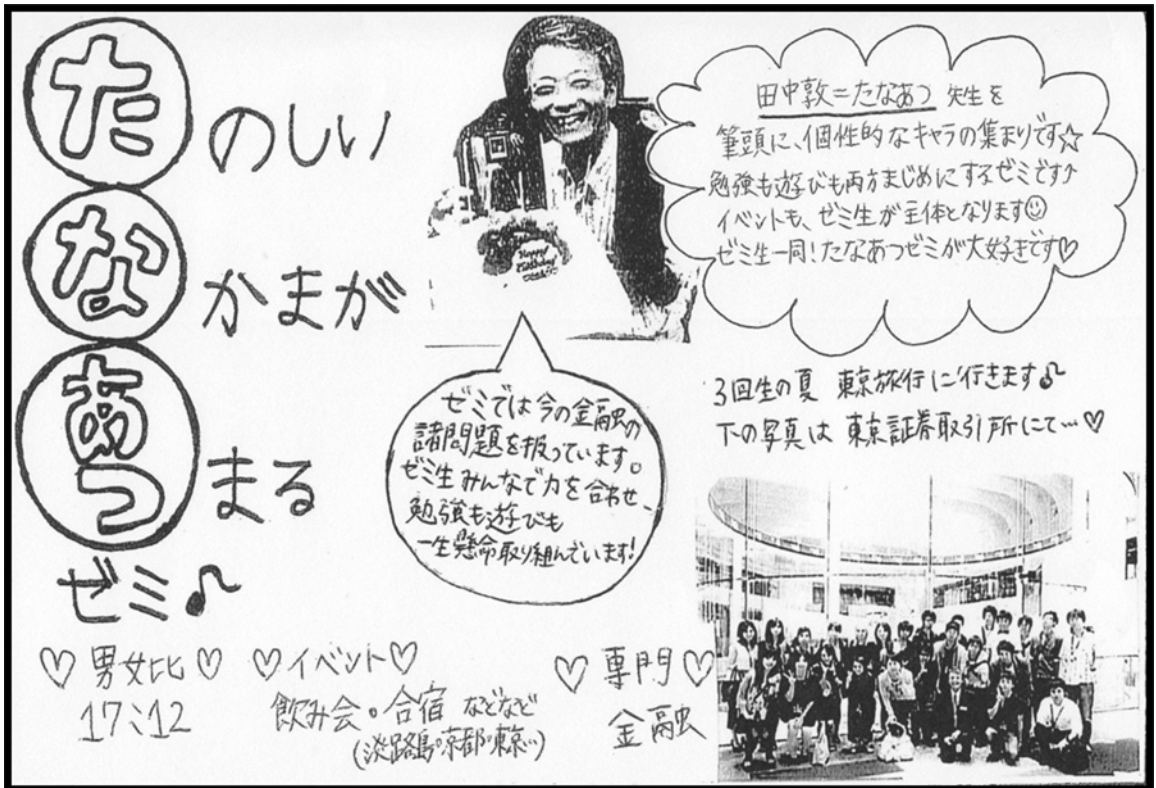 たのしい
なかまが
あつまる
ゼミ♪
Happy
Birthday
田中敦=たなあつ 先生を
筆頭に、個性的なキャラの集まりです☆
勉強も遊びも両方まじめにするゼミです♪
イベントも、ゼミ生が主体となります☺
ゼミ生一同!たなあつゼミが大好きです♡
ゼミでは今の金融の
諸問題を扱っています。
ゼミ生みんなで力を合わせ、
勉強も遊びも
一生懸命取り組んでいます!
3回生の夏 東京旅行に行きます♪
下の写真は 東京証券取引所にて…♡
♡男女比♡
17:12
♡イベント♡
飲み会。合宿 などなど
(淡路島・京都・東京…)
♡専門♡
金融